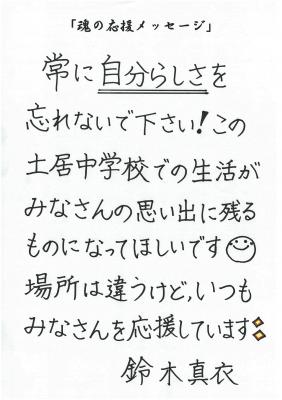 「魂の応援メッセージ」
常に自分らしさを
忘れないで下さい!この
土居中学校での生活が
みなさんの思い出に残る
ものになってほしいです
場所は違うけど,いつも
みなさんを応援しています
鈴木真衣